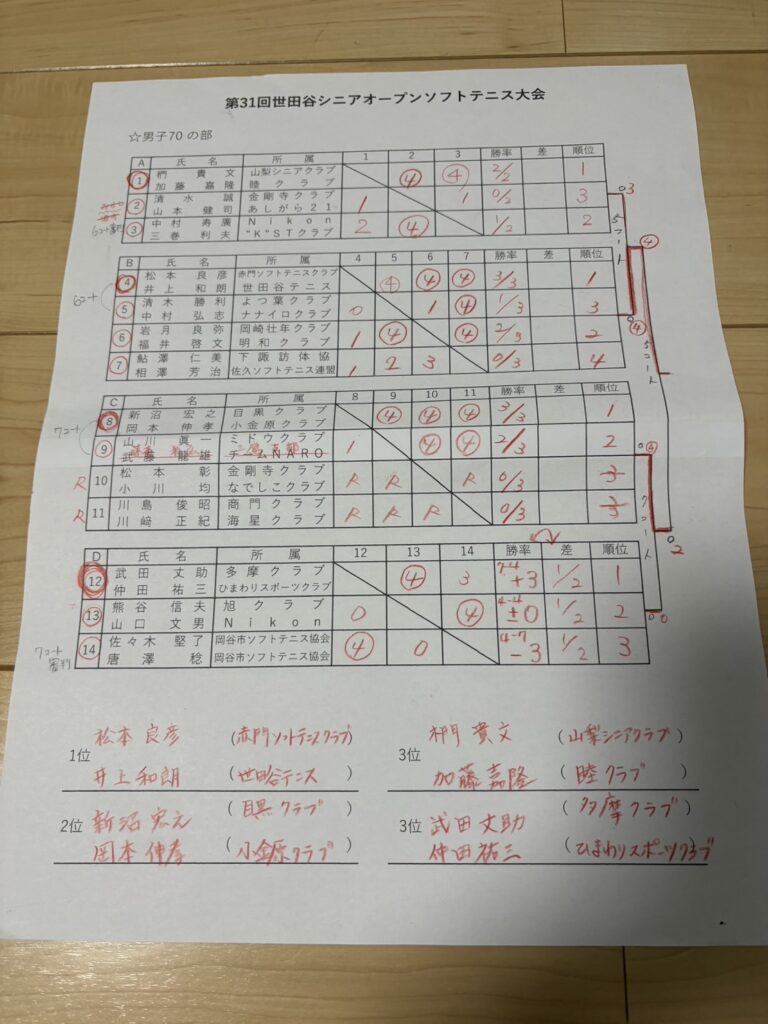 第31回世田谷シニアオープンソフトテニス大会
☆男子70 の部
A 氏 名 所 属 1 2 3 勝率 差 順位
① 椚 貴文 山梨シニアクラブ ④ ④ 2/2 1
加藤 嘉隆 睦クラブ
② 清水 誠 金剛寺クラブ 1 1 0/2 3
山本 健司 あしがら21
③ 中村 寿廣 Nikon 2 ④ 1/2 2
三巻 利夫 "K"STクラブ
B 氏 名 所 属 4 5 6 7 勝率 差 順位
④ 松本 良彦 赤門ソフトテニスクラブ ④ ④ ④ 3/3 1
井上 和朗 世田谷テニス
6コート
⑤ 清木 勝利 よつ葉クラブ 0 1 ④ 1/3 3
中村 弘志 ナナイロクラブ
⑥ 岩月 良弥 岡崎壮年クラブ 1 ④ ④ 2/3 2
福井 啓文 明和クラブ
⑦ 鮎澤 仁美 下諏訪体協 1 2 3 0/3 4
相澤 芳治 佐久ソフトテニス連盟
C 氏 名 所 属 8 9 10 11 勝率 差 順位
⑧ 新沼 宏之 目黒クラブ ④ ④ ④ 3/3 1
岡本 伸孝 小金原クラブ
7コート
⑨ 山川 眞一 ミドウクラブ 1 ④ ④ 2/3 2
武藤 龍雄 チームNARO
R 10 松本 彰 金剛寺クラブ R R R 0/3 3
小川 均 なでしこクラブ
R 11 川島 俊昭 商門クラブ R R R 0/3 3
川﨑 正紀 海星クラブ
D 氏 名 所 属 12 13 14 勝率 差 順位
⑫ 武田 丈助 多摩クラブ ④ 3 7-4 +3 1/2 1
仲田 祐三 ひまわりスポーツクラブ
⑬ 熊谷 信夫 旭クラブ 0 ④ 4-4 ±0 1/2 2
山口 文男 Nikon
⑭ 佐々木 堅了 岡谷市ソフトテニス協会 ④ 0 4-7 -3 1/2 3
唐澤 稔 岡谷市ソフトテニス協会
7コート
審判
03
5コート
④
0
④
5コート
0
④
7コート
0
2
0
1位 松本 良彦 (赤門ソフトテニスクラブ)
井上 和朗 (世田谷テニス)
2位 新沼 宏之 (目黒クラブ)
岡本 伸孝 (小金原クラブ)
3位 椚 貴文 (山梨シニアクラブ)
加藤 嘉隆 (睦クラブ)
3位 武田 丈助 (多摩クラブ)
仲田 祐三 (ひまわりスポーツクラブ)